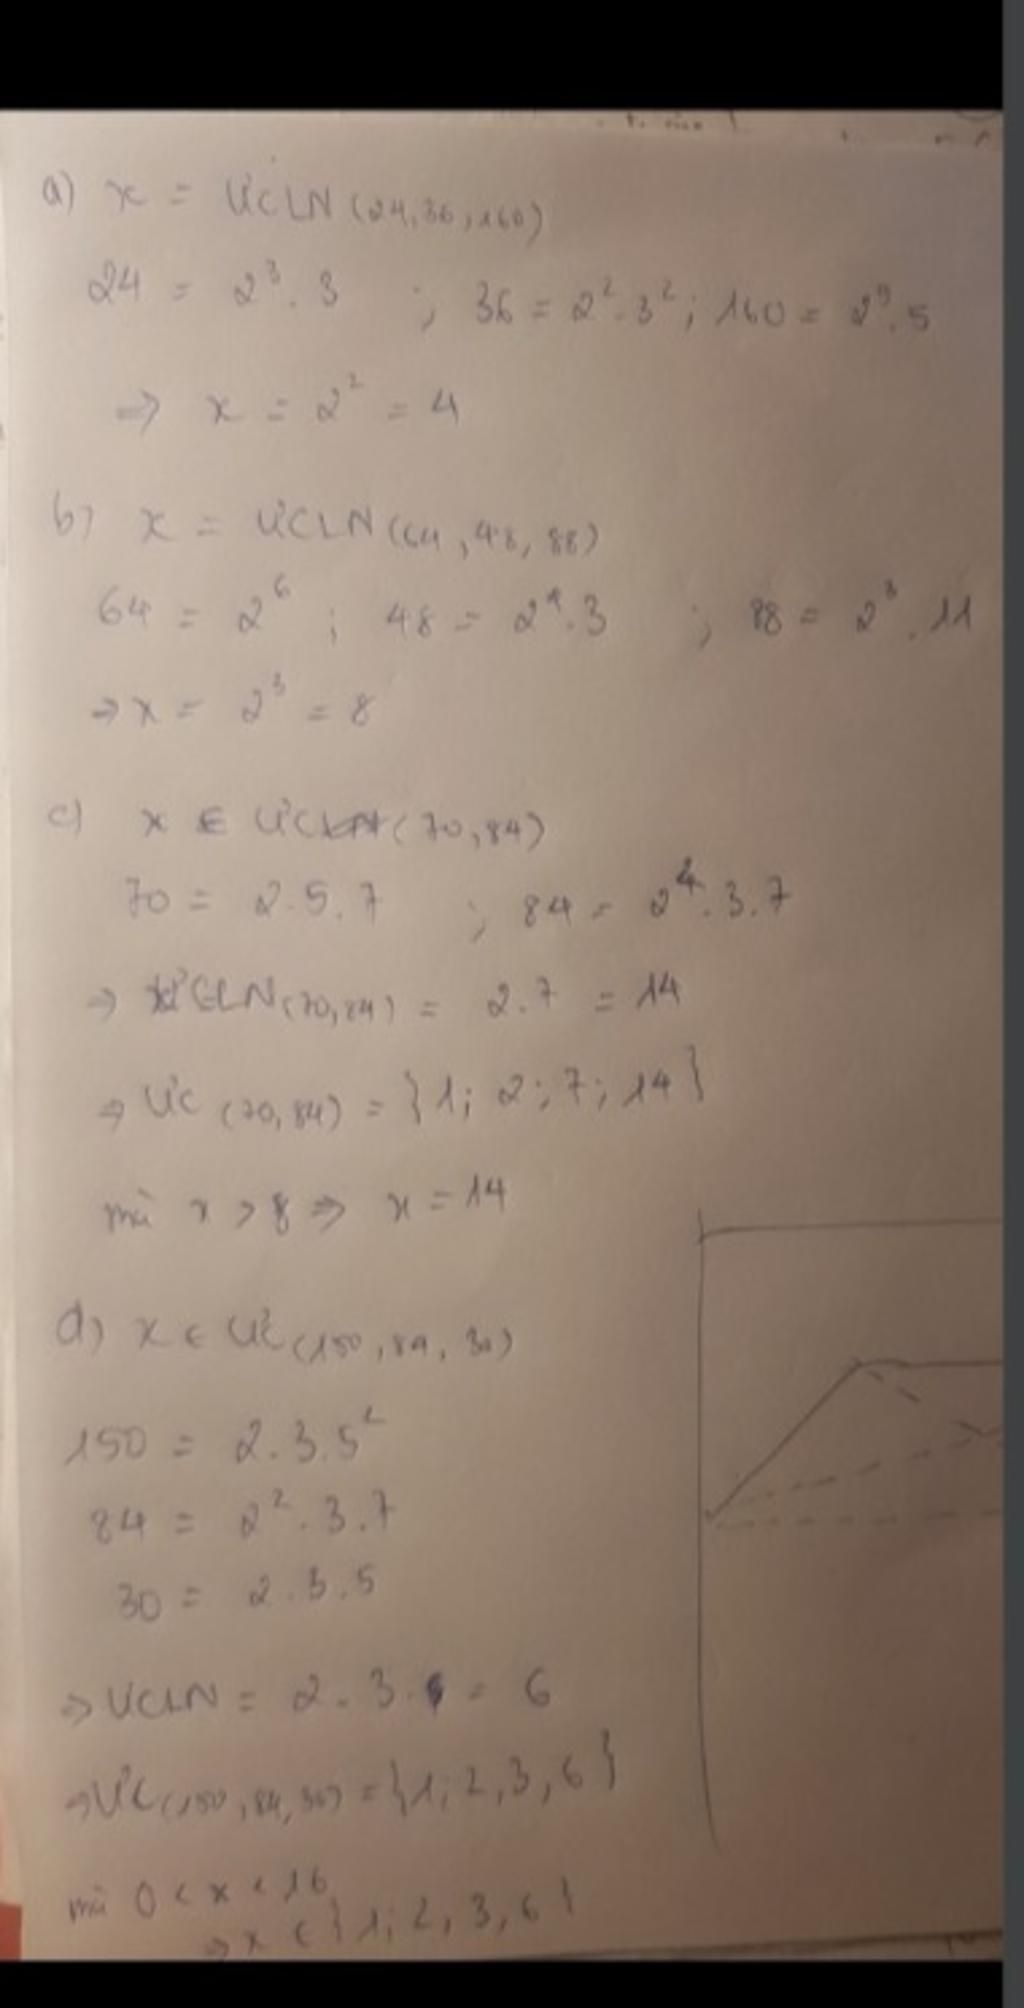 a) x = ƯCLN (24, 36, 160)
24 = 2³. 3 ; 36 = 2². 3²; 160 = 2⁵. 5
⇒ x = 2² = 4
b) x = ƯCLN (64, 48, 88)
64 = 2⁶ ; 48 = 2⁴. 3 ; 88 = 2³. 11
→ x = 2³ = 8
c) x ∈ ƯC (70, 84)
70 = 2. 5. 7 ; 84 = 2². 3. 7
⇒ ƯCLN (70, 84) = 2. 7 = 14
⇒ ƯC (70, 84) = {1; 2; 7; 14}
mà x > 8 ⇒ x = 14
d) x ∈ ƯC (150, 84, 30)
150 = 2. 3. 5²
84 = 2². 3. 7
30 = 2. 3. 5
⇒ ƯCLN = 2. 3. = 6
⇒ ƯC (150, 84, 30) = {1; 2, 3, 6}
mà 0 < x < 16
⇒ x ∈ {1; 2, 3, 6}